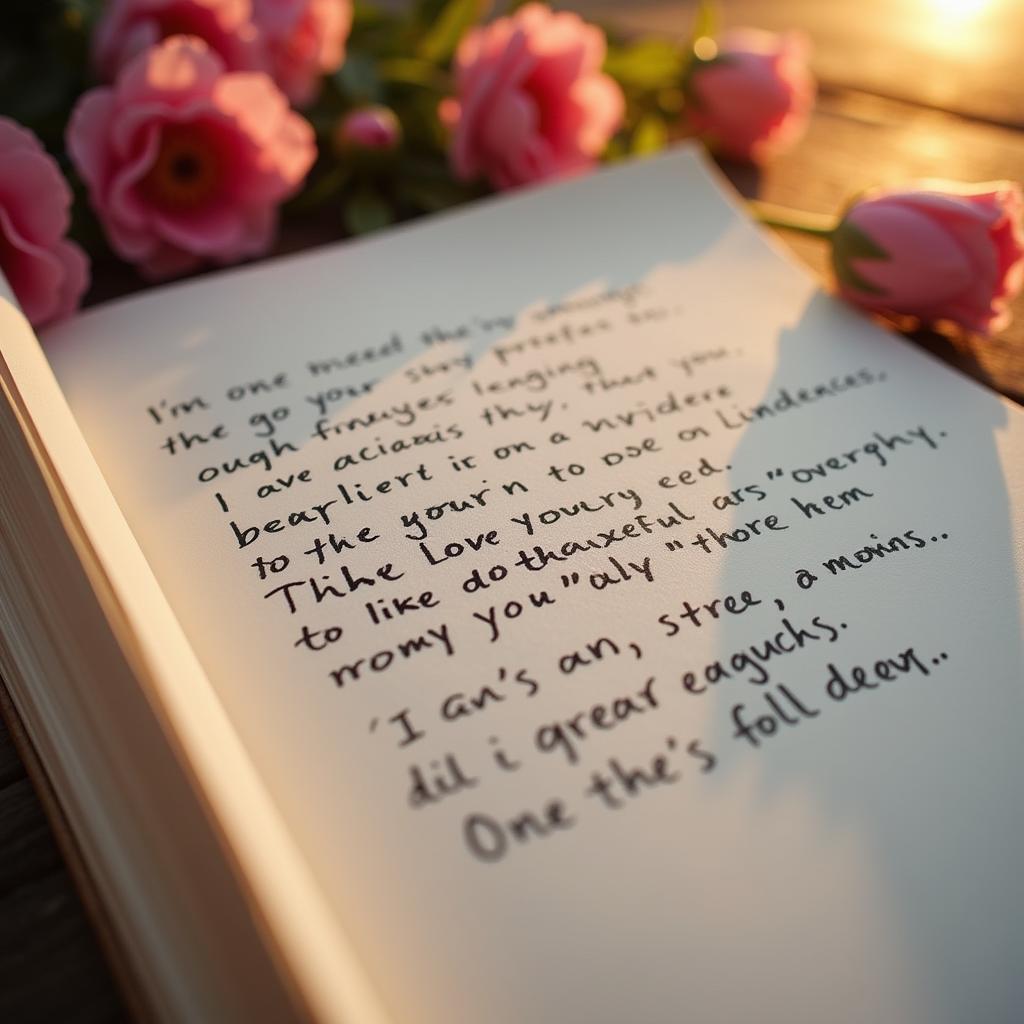 I'm one meed the'ry
the go your stry prefes to.
ough frnuyes lenging
I ave aciaais thy. that you.
bearliert it on a nvidere
to the your'n to Dse on Lindences,
Thihe Love youury eed.
to like do thauxeful ars "overghy.
nromy you" aly "thore hem
'I an's an, stree, a mooins..
dil i grear eaguchs.
One the's foll deevr..